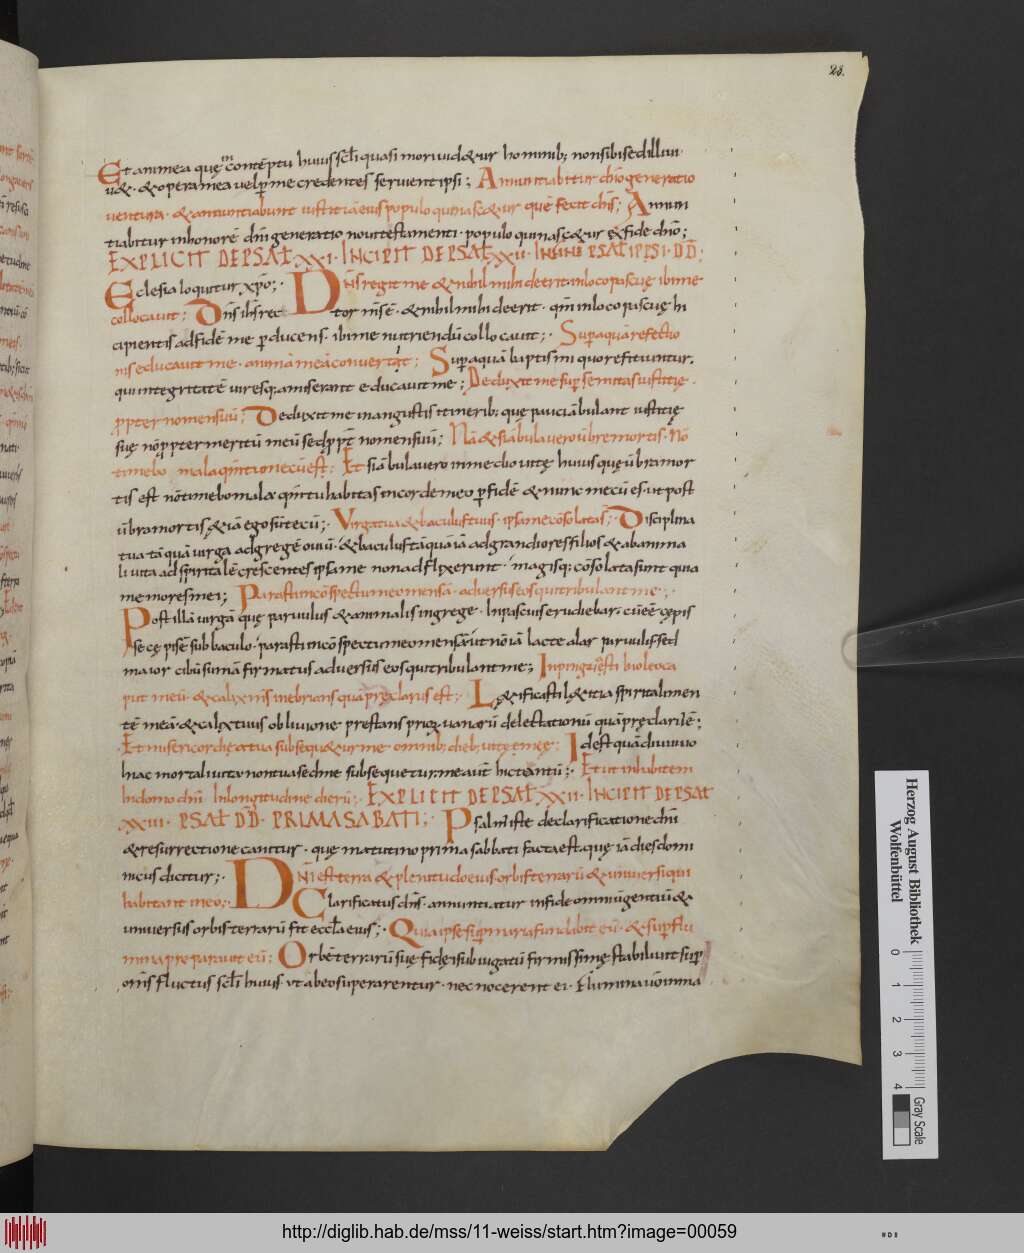 28.
Et anima mea quę contēptu huius scl̄i quasi moritura uidetur hominib; non sibi sed illi uiu
u&. & opera mea uel p me credentes seruient ipsi; Annuntiabitur dn̄o generatio
uentura. & annuntiabunt iustitiā eius populo qui nasc&ur quē fecit dn̄s; Annun
tiabitur in honorē dn̄i generatio noui testamenti. populo qui nasc&ur ex fide dn̄o;
EXPLICIT DE PSAL XXI. INCIPIT DE PSAL XXII. IN FINE PSAL IPSI DD̄.
Eclesia loquitur xp̄o; DN̄S regit me & nihil mihi deerit in loco pascuę ibi me
collocauit; Dn̄s ih̄s rec tor m̄s ē. & nihil mihi deerit. qm̄ in loco pascuę in
cipientis ad fidē me pducens. ibi me nutriendū collocauit; Sup aquā refectio
nis educauit me. animā meā conuertit; Sup aquā baptismi quo reficiuntur.
qui integritatē uiresq; amiserant educauit me; Deduxit me sup semitas iustitię.
ppter nomen suū; Deduxit me in angustis itinerib; quę pauci ābulant iustitię
suę nō ppter meritū meū sed ppt nomen suū; Nā & si ābulauero in ūbre mortis. nō
timebo mala qm̄ tu mecū es; Et si ābulauero in medio uitę huius quę ūbra mor
tis est nō timebo mala qm̄ tu habitas in corde meo p fidē & nunc mecū es. ut post
ūbra mortis, & iā ego sū tecū; Virga tua & baculus tuus. ipsa me cōsolatas; Disciplina
tua tāquā uirga ad gregē ouiū. & baculus tāquā iā ad grandiores filios & ab anima
li uita ad spiritalē crescentes ipsa me non adflixerunt. magisq; cōsolata sunt quia
memores mei; Parasti in cōspectu meo mensā. aduersus eos qui tribulant me.;
Post illā uirgā quę paruulus & animalis in grege. In pascuis erudiebar. cū eē cępis
se cępi sē sub baculo. parasti in cōspectu meo mensā ut nō iā lacte alar paruulus. sed
maior cibū sumā firmatus aduersus eos qui tribulant me; Inpinguasti in oleo ca
put meū. & calix m̄s inebrians quā pręclarus est; L&ificasti l&itia spiritali men
tē meā. & calix tuus obliuione prestans priorū uanarū delectationū quā pręclarū ē;
Et misericordia tua subsequ&ur me omnib; dieb; uitę męę; Id est quādiu uiuo
hac mortali uita non tua sed me subsequetur mea ūt Et ut inhabitem
In domo dn̄i. In longitudine dierū; EXPLICIT DE PSAL XXII. INCIPIT DE PSAL
XXIII. PSAL DD̄. PRIMA SABATI; Psalm̄ iste de clarificatione dn̄i
& resurrectione canitur. quę matutino prima sabbati facta est. quę iā dies domi
nicus dicitur; DN̄I est terra & plenitudo eius orbis terrarū & uniuersi qui
habitant in eo; Clarificatus dn̄s. annuntiatur in fide omniū gentiū &
uniuersus orbis terrarū fit eccl̄a eius; Quia ipse sup maria fundabit eū. & sup flu
mina preparauit eū; Orbē terrarū suę fidei subiugatū firmissimę stabiliuit sup
om̄s fluctus scl̄i huius. ut ab eo superarentur. nec nocerent ei. Flumina ū omnia
Herzog August Bibliothek
Wolfenbüttel
0 1 2 3 4
Gray Scale
http://diglib.hab.de/mss/11-weiss/start.htm?image=00059